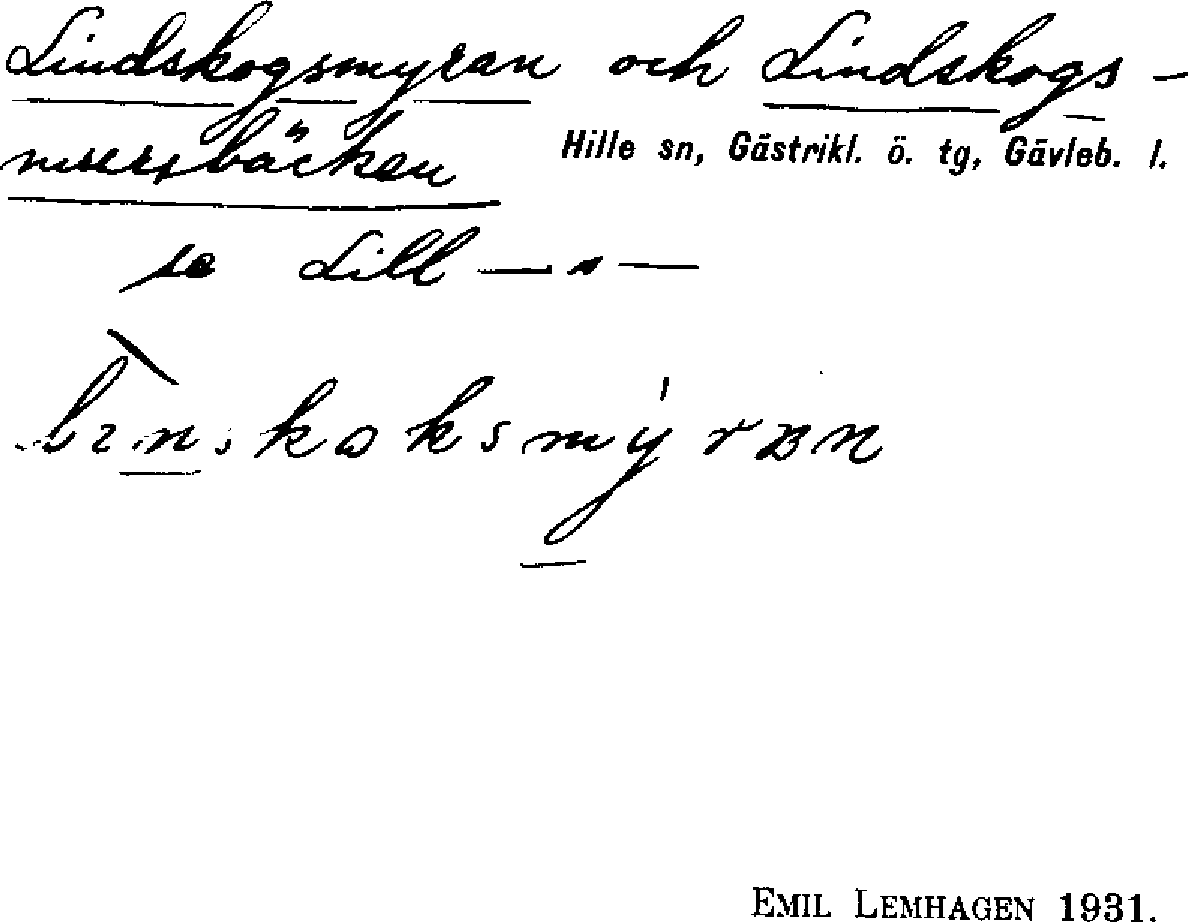 Lindskogsmyran och Lindskogs-
bäcken Hille sn, Gästrikl. ö. tg, Gävleb. l.
se Lill — „ —
EMIL LEMHAGEN 1931.